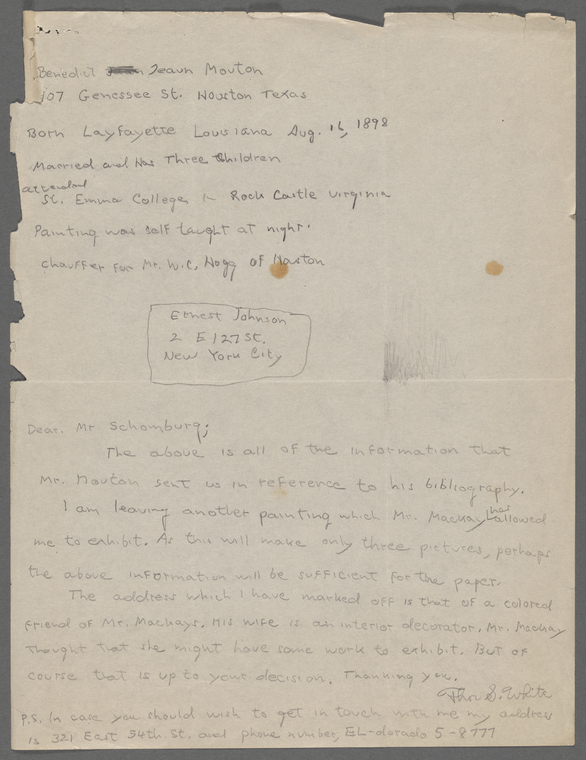 Benedict Jeaun Mouton
107 Genessee St. Houston Texas
Born Layfayette Louisiana Aug. 16, 1898
Married and Has Three Children
attended
St. Emma College in Rock Castle Virginia
Painting was self taught at night.
chauffer for Mr. W.C. Hogg of Houston
Ernest Johnson
2 E 127 St.
New York City
Dear. Mr Schomburg;
The above is all of the information that
Mr. Mouton sent us in reference to his bibliography.
I am leaving another painting which Mr. Mackay has allowed
me to exhibit. As this will make only three pictures, perhaps
the above information will be sufficient for the paper.
The address which I have marked off is that of a colored
friend of Mr. Mackays. His wife is an interior decorator. Mr. Mackay
thought that she might have some work to exhibit. But of
course that is up to your decision. Thanking you.
Thos S. White
P.S. In case you should wish to get in touch with me my address
is 321 East 54th St. and phone number, EL-dorado 5-8777